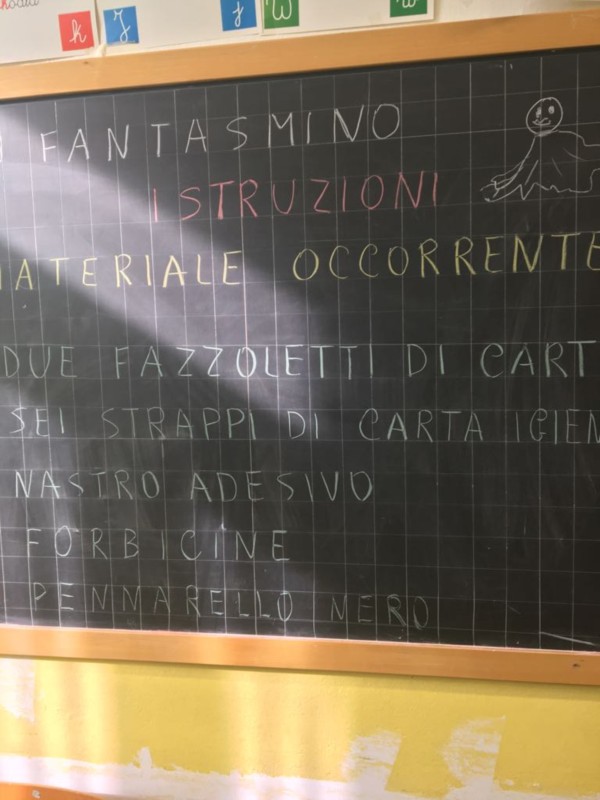 k J j W w
FANTASMINO
ISTRUZIONI
MATERIALE OCCORRENTE
DUE FAZZOLETTI DI CART
SEI STRAPPI DI CARTA IGIEN
NASTRO ADESIVO
FORBICINE
PENNARELLO NERO